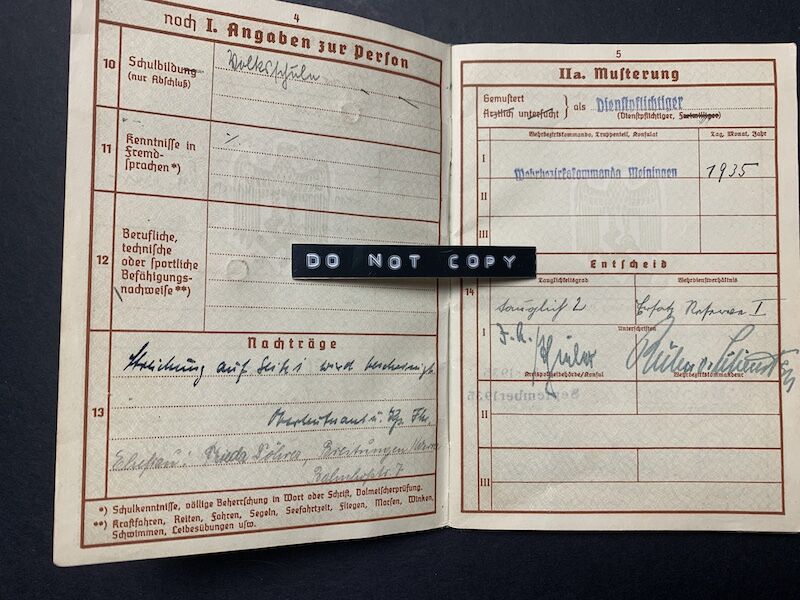 4
noch I. Angaben zur Person
10 Schulbildung
(nur Abschluß)
Volksschule
11 Kenntnisse in
Fremd-
sprachen*)
12 Berufliche,
technische
oder sportliche
Befähigungs-
nachweise**)
Nachträge
13 Streichung auf Seite 1 wird bescheinigt
Oberleutnant u.
Ehefrau: Frieda
Bahnhofstr. 7
*) Schulkenntnisse, völlige Beherrschung in Wort oder Schrift, Dolmetscherprüfung.
**) Kraftfahren, Reiten, Fahren, Segeln, Seefahrtzeit, Fliegen, Morsen, Winken,
Schwimmen, Leibesübungen usw.
DO NOT COPY
5
IIa. Musterung
Gemustert
Ärztlich untersucht } als Dienstpflichtiger
(Dienstpflichtiger, Freiwilliger)
Wehrbezirkskommando, Truppenteil, Konsulat
Tag, Monat, Jahr
I
Wehrbezirkskommando Meiningen
1935
II
III
Entscheid
14
Tauglichkeitsgrad
Wehrdienstverhältnis
tauglich 2
Ersatz Reserve I
I
Unterschriften
Kreispolizeibehörde/Konsul
Wehrbezirkskommandeur
September 1935
II
III